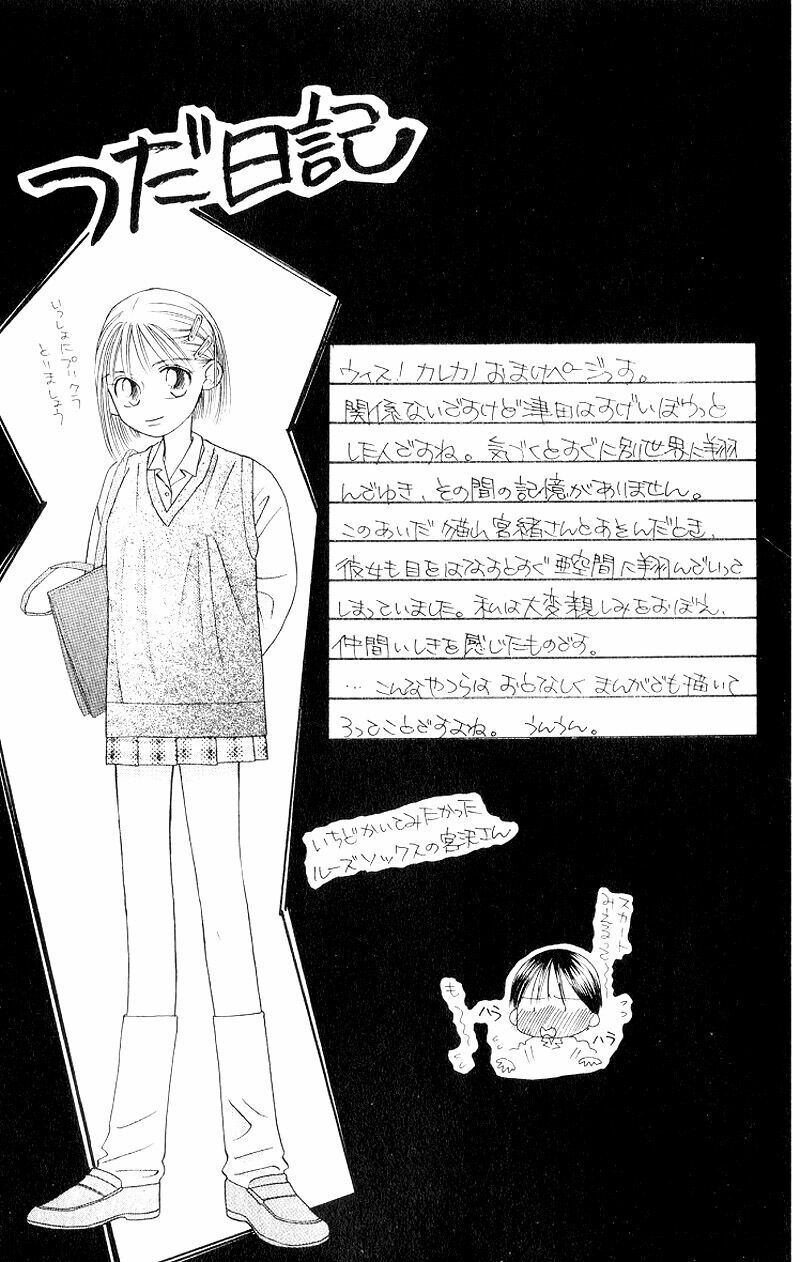 つだ日記
いっしょにプリクラ
とりましょう
ウィス!カレカノおまけページっす。
関係ないですけど津田はすげいぼけっと
した人ですね。気づくとすぐに別世界に翔
んでゆき、その間の記憶がありません。
このあいだ猫山宮緒さんとあそんだとき、
彼女も目をはなすとすぐ亜空間に翔んでいって
しまっていました。私は大変親しみをおぼえ、
仲間いしきを感じたものです。
…こんなやつらはおとなしくまんがでも描いて
ろってことですよね。うんうん。
いちどかいてみたかった
ルーズソックスの宮沢さん
スカート
みえるってー
も〜〜〜っ
ハラ
ハラ